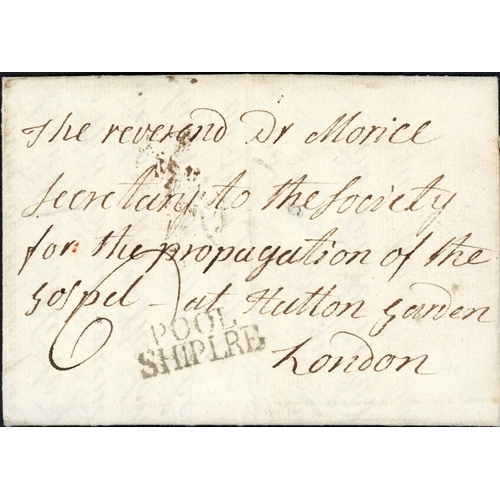 The reverend Dr Morice
secretary to the Society
for the propagation of the
Gospel - at Hutton Garden
London
POOL
SHIP LRE